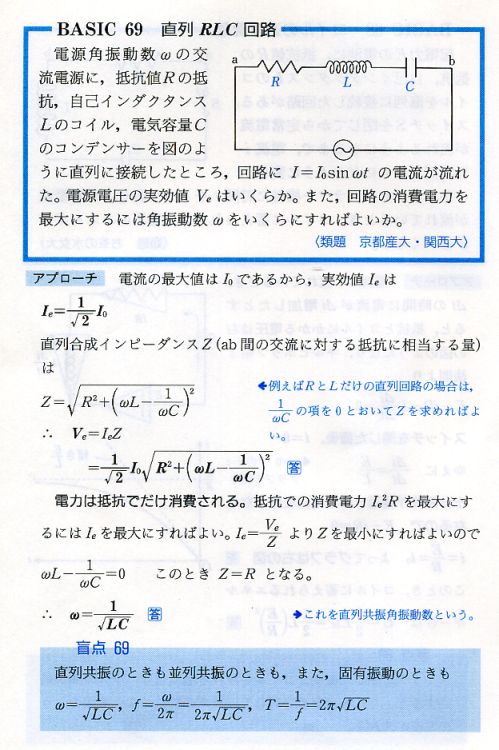 BASIC 69 直列 RLC 回路
電源角振動数 ω の交
流電源に，抵抗値 R の抵
抗，自己インダクタンス
L のコイル，電気容量 C
のコンデンサーを図のよ
うに直列に接続したところ，回路に I=I₀sin ωt の電流が流れ
た。電源電圧の実効値 Vₑ はいくらか。また，回路の消費電力を
最大にするには角振動数 ω をいくらにすればよいか。
〈類題 京都産大・関西大〉
a
R
L
C
b
アプローチ 電流の最大値は I₀ であるから，実効値 Iₑ は
Iₑ=1/√2 I₀
直列合成インピーダンス Z (ab 間の交流に対する抵抗に相当する量)
は
Z=√(R²+(ωL−1/ωC)²)
←例えば R と L だけの直列回路の場合は，
1/ωC の項を 0 とおいて Z を求めればよ
い。
∴ Vₑ=IₑZ
=1/√2 I₀√(R²+(ωL−1/ωC)²) 答
電力は抵抗でだけ消費される。抵抗での消費電力 Iₑ²R を最大にす
るには Iₑ を最大にすればよい。Iₑ=Vₑ/Z より Z を最小にすればよいので
ωL−1/ωC=0 このとき Z=R となる。
∴ ω=1/√LC 答
→これを直列共振角振動数という。
盲点 69
直列共振のときも並列共振のときも，また，固有振動のときも
ω=1/√LC，f=ω/2π=1/2π√LC，T=1/f=2π√LC